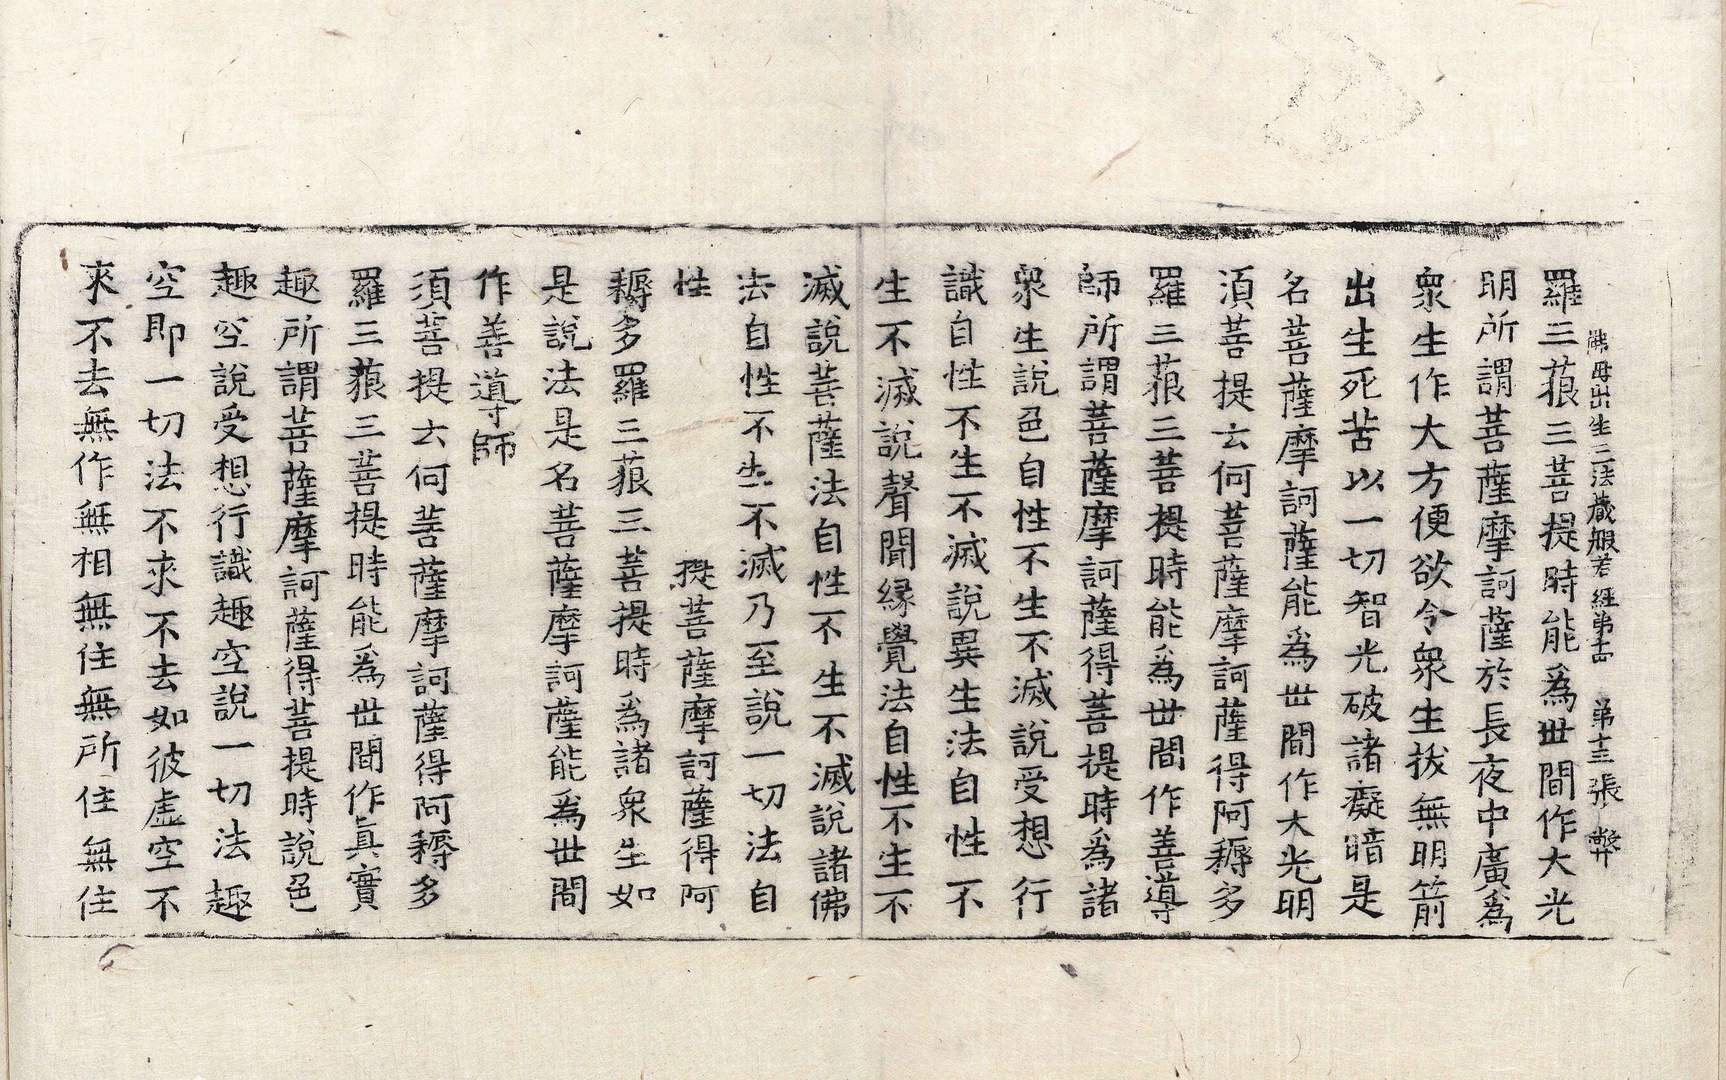 佛母出生三法藏般若經第十四　第十三張　弊
羅三藐三菩提時能爲世間作大光
明所謂菩薩摩訶薩於長夜中廣爲
衆生作大方便欲令衆生拔無明箭
出生死苦以一切智光破諸癡暗是
名菩薩摩訶薩能爲世間作大光明
須菩提云何菩薩摩訶薩得阿耨多
羅三藐三菩提時能爲世間作善導
師所謂菩薩摩訶薩得菩提時爲諸
衆生說色自性不生不滅說受想行
識自性不生不滅說異生法自性不
生不滅說聲聞緣覺法自性不生不
滅說菩薩法自性不生不滅說諸佛
法自性不生不滅乃至說一切法自
性　提菩薩摩訶薩得阿
耨多羅三藐三菩提時爲諸衆生如
是說法是名菩薩摩訶薩能爲世間
作善導師
須菩提云何菩薩摩訶薩得阿耨多
羅三藐三菩提時能爲世間作真實
趣所謂菩薩摩訶薩得菩提時說色
趣空說受想行識趣空說一切法趣
空即一切法不來不去如彼虛空不
來不去無作無相無住無所住無住